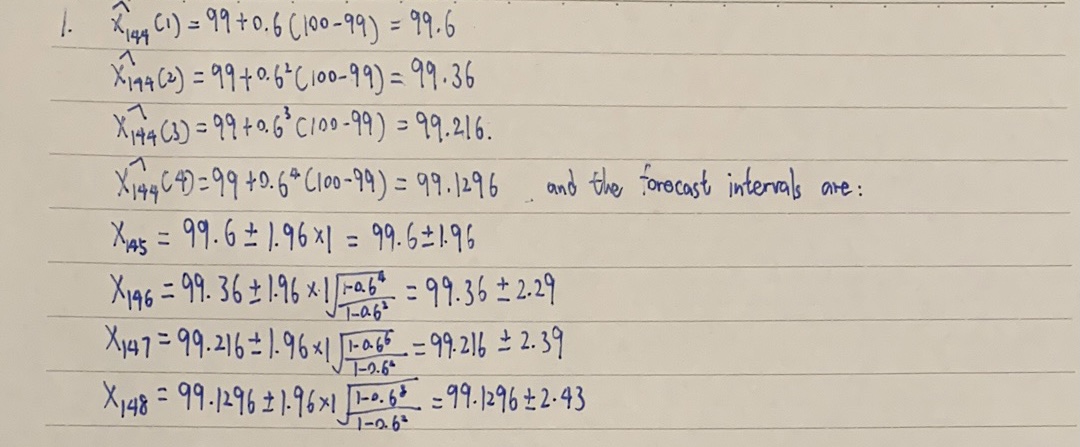 1. X̂₁₄₄(1) = 99+0.6(100-99) = 99.6
X̂₁₄₄(2) = 99+0.6²(100-99) = 99.36
X̂₁₄₄(3) = 99+0.6³(100-99) = 99.216.
X̂₁₄₄(4) = 99+0.6⁴(100-99) = 99.1296 and the forecast intervals are:
X₁₄₅ = 99.6 ± 1.96×1 = 99.6±1.96
X₁₄₆ = 99.36 ± 1.96×1√((1-0.6⁴)/(1-0.6²)) = 99.36 ± 2.29
X₁₄₇ = 99.216 ± 1.96×1√((1-0.6⁶)/(1-0.6²)) = 99.216 ± 2.39
X₁₄₈ = 99.1296 ± 1.96×1√((1-0.6⁸)/(1-0.6²)) = 99.1296 ± 2.43